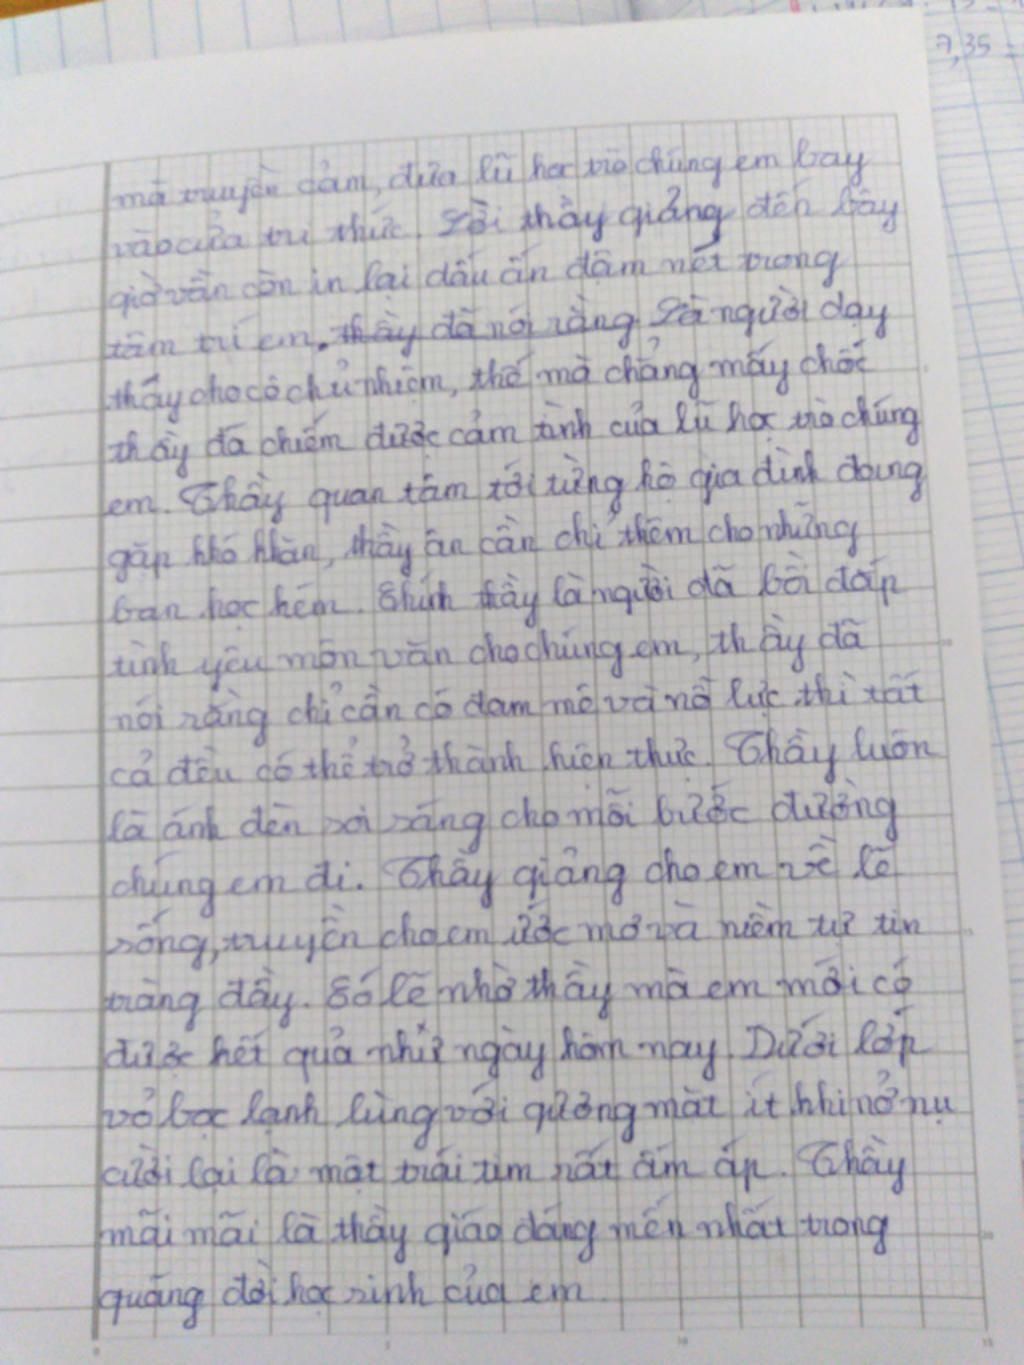 7,35 =
mà truyền cảm, đưa lũ học trò chúng em bay
vào cửa tri thức. Lời thầy giảng đến bây
giờ vẫn còn in lại dấu ấn đậm nét trong
tâm trí em. thầy đã nói rằng Là người dạy
thay cho cô chủ nhiệm, thế mà chẳng mấy chốc
thầy đã chiếm được cảm tình của lũ học trò chúng
em. Thầy quan tâm tới từng hộ gia đình đang
gặp khó khăn, thầy ân cần chỉ thêm cho những
bạn học kém. Chính thầy là người đã bồi đắp
tình yêu môn văn cho chúng em, thầy đã
nói rằng chỉ cần có đam mê và nỗ lực thì tất
cả đều có thể trở thành hiện thực. Thầy luôn
là ánh đèn soi sáng cho mỗi bước đường
chúng em đi. Thầy giảng cho em về lẽ
sống, truyền cho em ước mơ và niềm tự tin
tràng đầy. Có lẽ nhờ thầy mà em mới có
được kết quả như ngày hôm nay. Dưới lớp
vỏ bọc lạnh lùng với gương mặt ít khi nở nụ
cười lại là một trái tim rất ấm áp. Thầy
mãi mãi là thầy giáo đáng mến nhất trong
quãng đời học sinh của em.
5
10
15